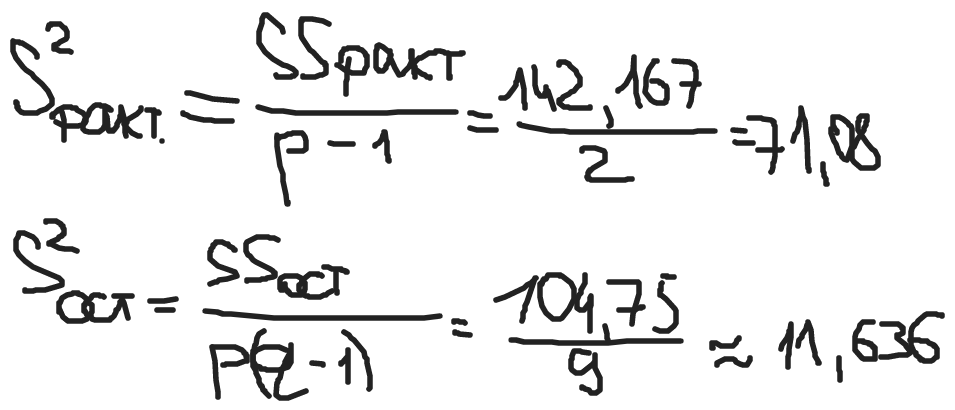 S²факт. = SSфакт / (p - 1) = 142,167 / 2 = 71,08
S²ост = SSост / (p(q - 1)) = 104,75 / 9 ≈ 11,636